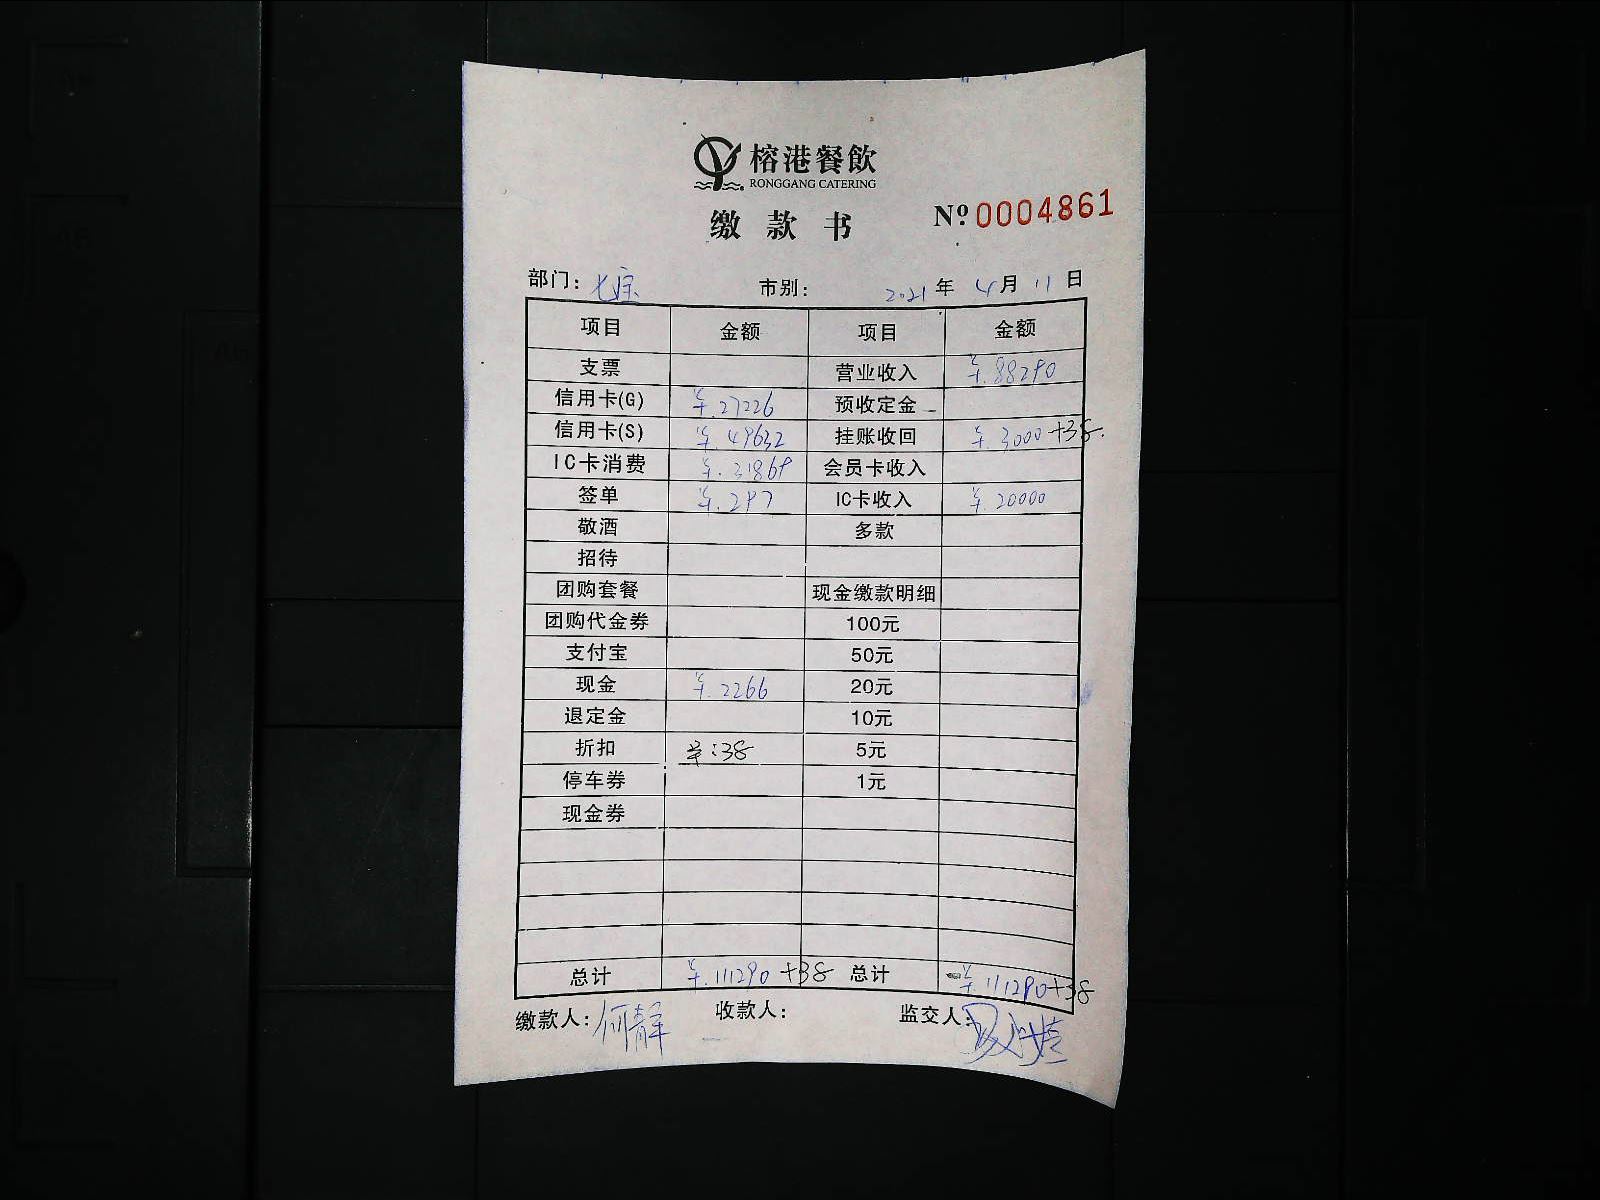 榕港餐飲
RONGGANG CATERING
缴款书 Nº 0004861
部门: 七宝 市别: 2021年 4月 11日
项目 金额 项目 金额
支票 营业收入 ¥.88290
信用卡(G) ¥.27226 预收定金
信用卡(S) ¥.49632 挂账收回 ¥.3000+38.
IC卡消费 ¥.31869 会员卡收入
签单 ¥.297 IC卡收入 ¥.20000
敬酒 多款
招待
团购套餐 现金缴款明细
团购代金券 100元
支付宝 50元
现金 ¥.2266 20元
退定金 10元
折扣 ¥:38 5元
停车券 1元
现金券
总计 ¥.111290+38 总计 ¥.111290+38
缴款人: 何静 收款人: 监交人: